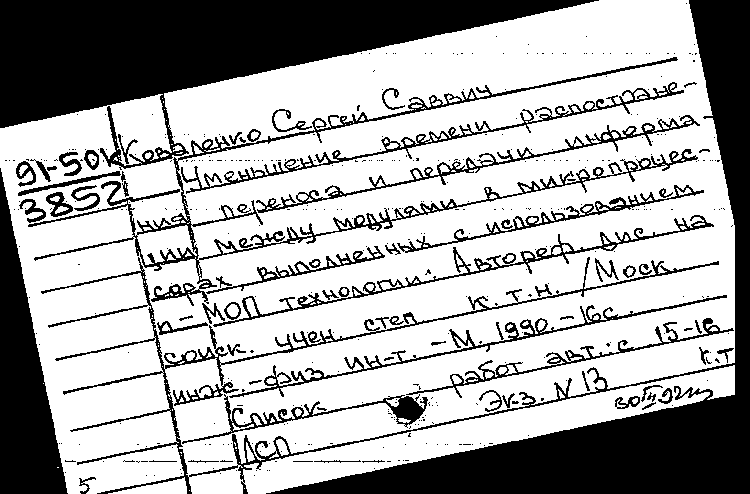 91-50к
3852
Коваленко, Сергей Саввич
Уменьшение времени распостране-
ния переноса и передачи информа-
ции между модулями в микропроцес-
сорах, выполненных с использованием
n-МОП технологии: Автореф. дис. на
соиск. учен. степ к.т.н. /Моск.
инж.-физ ин-т. - М., 1990. - 16с.
Список работ авт.: с 15-16
ДСП Экз. N 13 к.т
5